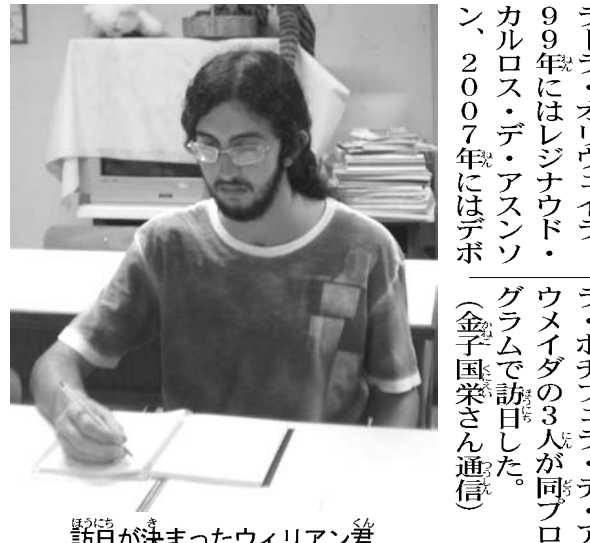 99年にはレジナウド・
カルロス・デ・アスンソ
ン、2007年にはデボ
ウメイダの3人が同プロ
グラムで訪日した。
（金子国栄さん通信）
訪日が決まったウィリアン君